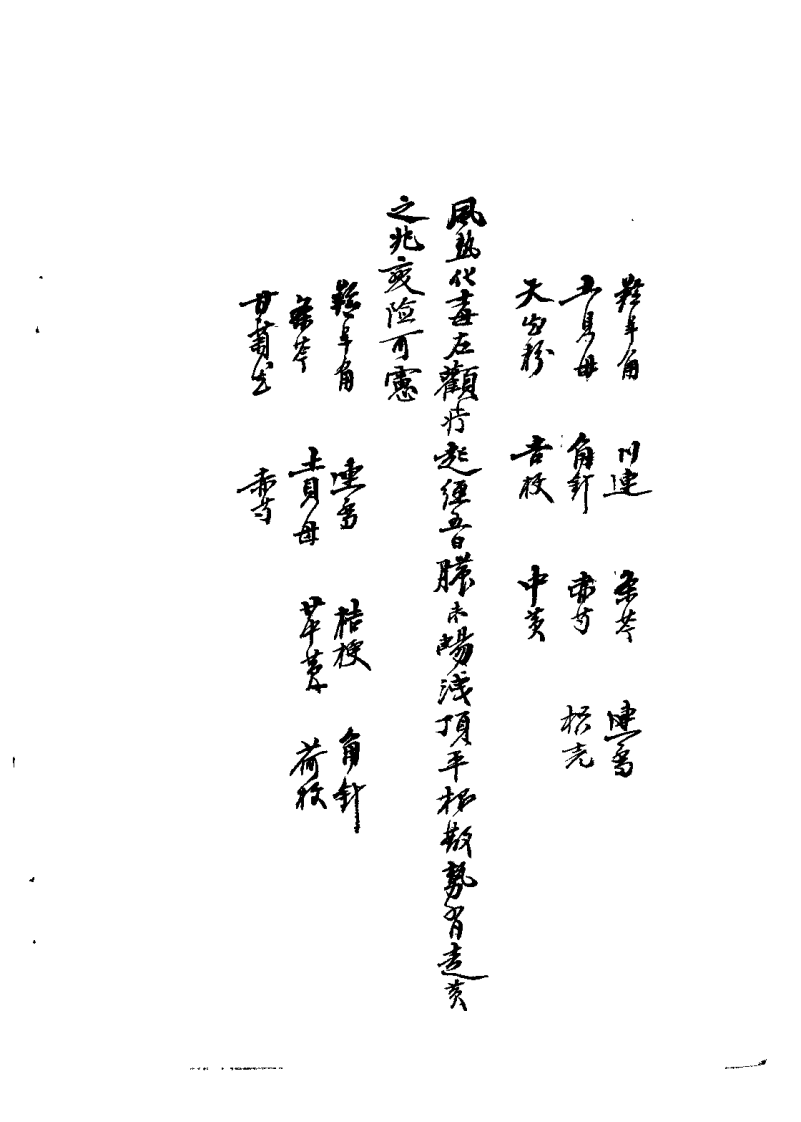 羚羊角 川連 条芩 連喬
土貝母 角針 赤芍 枳壳
天花粉 吉梗 中黄
風熱化毒左顴疔起經五日膿未暢浅頂平根散勢有走黄
之兆变险可慮
羚羊角 連喬 桔梗 角針
条芩 土貝母 草黄 荷梗
甘菊花 赤芍